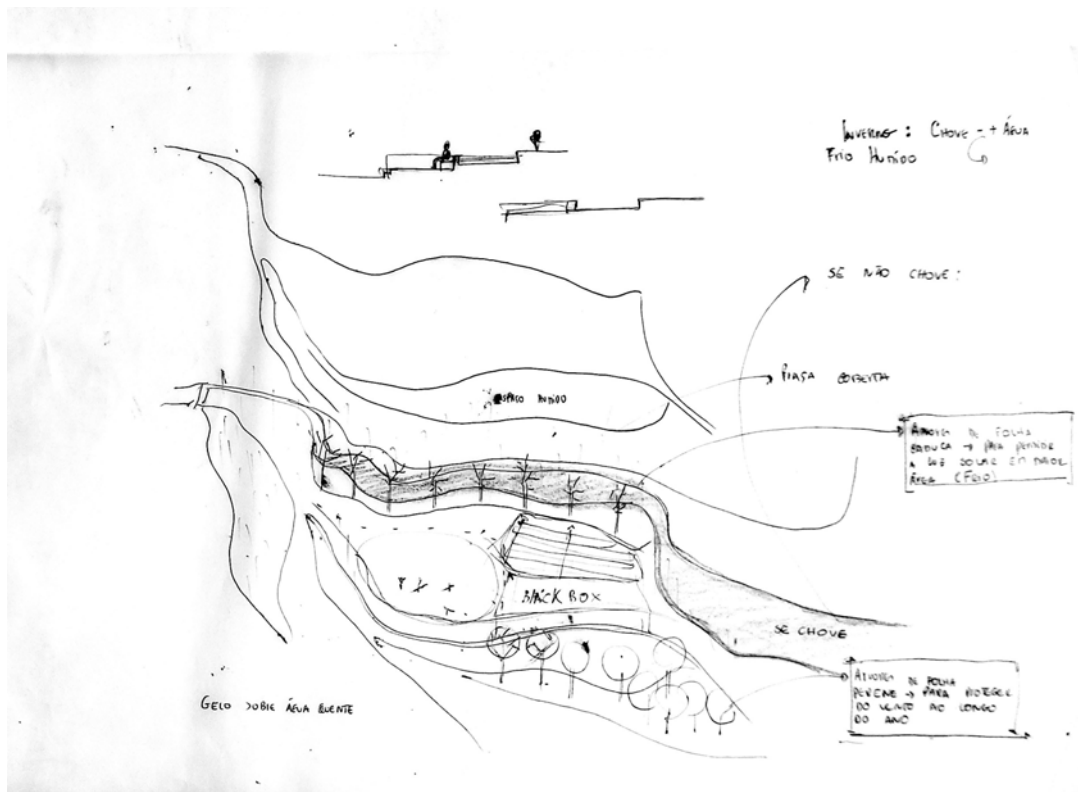 INVERNO : CHOVE → + ÁGUA
FRIO HUMIDO
SE NÃO CHOVE :
PRAÇA COBERTA
ESPAÇO HUMIDO
ÁRVORES DE FOLHA
CADUCA → PARA PERMITIR
A LUZ SOLAR EM MAIOR
ÁREA (FRIO)
BLACK BOX
SE CHOVE
ÁRVORES DE FOLHA
PERENE → PARA PROTEGER
DO VENTO AO LONGO
DO ANO
GELO SOBRE ÁGUA QUENTE